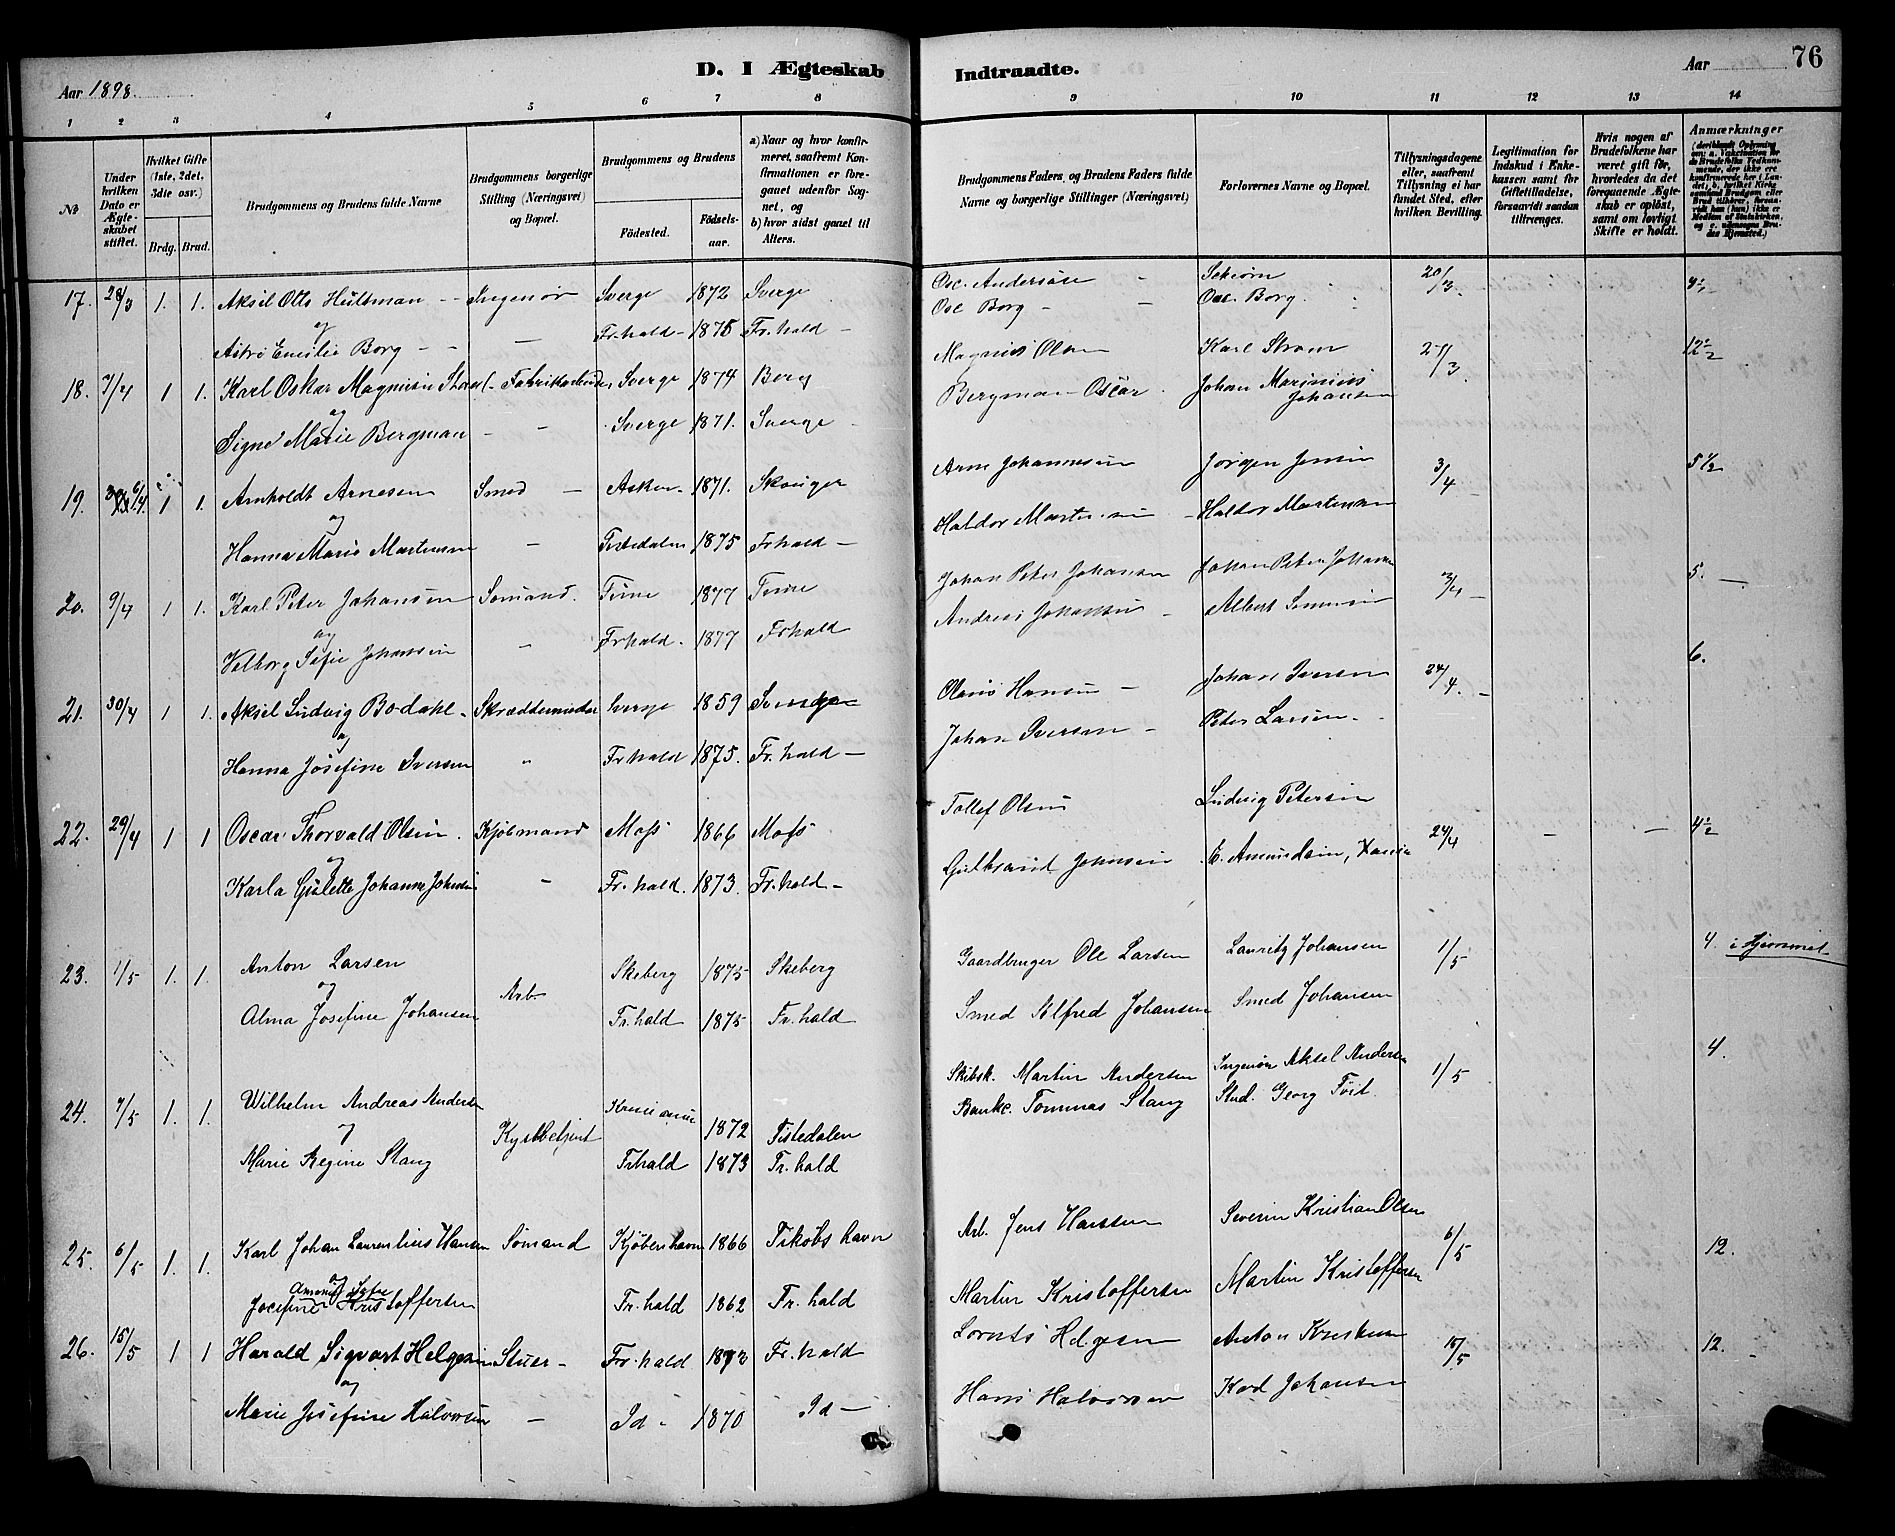 D. I Ægteskab Indtraadte.
76
Aar 1898.
Aar
1 2 3 4 5 6 7 8 9 10 11 12 13 14
№
Under hvilken Dato er Ægteskabet stiftet.
Hvilket Gifte (1ste, 2det, 3die osv.)
Brdg. Brud.
Brudgommens og Brudens fulde Navne
Brudgommens borgerlige Stilling (Næringsvei) og Bopæl.
Brudgommens og Brudens
Födested. Födselsaar.
a) Naar og hvor konfirmeret, saafremt Konfirmationen er foregaaet udenfor Sognet, og
b) hvor sidst gaaet til Alters.
Brudgommens Faders, og Brudens Faders fulde Navne og borgerlige Stillinger (Næringsvei)
Forlovernes Navne og Bopæl.
Tillysningsdagene eller, saafremt Tillysning ei har fundet Sted, efter hvilken Bevilling.
Legitimation for Indskud i Enkekassen samt for Giftetilladelse, forsaavidt saadan tiltrænges.
Hvis nogen af Brudefolkene har været gift før, hvorledes da det foregaaende Ægteskab er opløst, samt om lovligt Skifte er holdt.
Anmærkninger
17. 28/3 1. 1. Aksel Otto Hultman Ingeniör Sverge 1872 Sverge Osc. Andersöse 20/3
og Osc Borg Osc. Borg
Astri Emilie Borg Fr.hald 1875 Fr.hald
18. 7/4 1 1. Karl Oskar Magnusen Fabrikkarbeider Sverge 1874 Berg Magnus Olsen Karl Strøm 27/3 12½
og Bergman Oscar Johan Marinius Johansen
Signe Marie Bergman Sverge 1871. Sverge
19. 1 1. Arnholdt Arnesen Smed Asker 1871. Skouger Arne Johannesen Jörgen Jensen 3/4 5½
og Haldor Martensen Haldor Martensen
Hanna Marie Martensen Tistedalen 1875 Frhald
20. 9/4 1 1. Karl Peter Johansen Sömand. 1877 Johan Peter Johansen Johan Peter Johansen 3/4 5.
og Andreas Johansen Albert
Valborg Sofie Johansen Frhald 1877 Frhald
21. 30/4 1 1. Aksel Ludvig Bodahl Skræddermester Sverge 1859 Sverge Olaus Hansen Johan Iversen 24/4. 6.
og Johan Iversen Peter Larsen
Hanna Josefine Iversen Frhald 1875. Fr.hald
22. 29/4 1 1 Oscar Thorvald Olsen Kjöbmand Moss 1866 Moss Tollef Olsen Ludvig Petersen 24/4 4½
og Gulbrand Johnsen E. Amundsen,
Karla Gulette Johanne Johnsen Fr.hald. 1873. Fr.hald
23. 1/5 1. 1. Anton Larsen Arb Skeberg 1875 Skeberg Gaardbruger Ole Larsen Lauritz Johansen 1/5 4. i Hjemmet
og
Alma Josefine Johansen Fr.hald 1875 Fr.hald Smed Alfred Johansen Smed Johansen
24. 7/5 1. 1. Wilhelm Andreas Andersen Kystbetjent 1872 Tistedalen Skibsk. Martin Andersen Ingeniör Aksel Andersen 1/5 4.
og Bankc. Tommas Stang Stud. Georg Foit
Marie Regine Stang Frhald 1873 Fr.hald
25. 6/5 1. 1. Karl Johan Laurentius Hansen Sömand Kjöbenhavn 1866 Tiköbs havn Arb. Jens Hansen Severin Kristian Olsen 6/5 12.
og
Josefine Kristoffersen Fr.hald 1862 Fr.hald Martin Kristoffersen Martin Kristoffersen
26. 15/5 1 1 Harald Sigvart Helgesen Stuer Fr.hald 1872 Fr.hald Lornts Helgesen Anton 15/5 12.
og Hans Halvorsen Karl Johansen
Marie Josefine Halvorsen Id 1870 Id